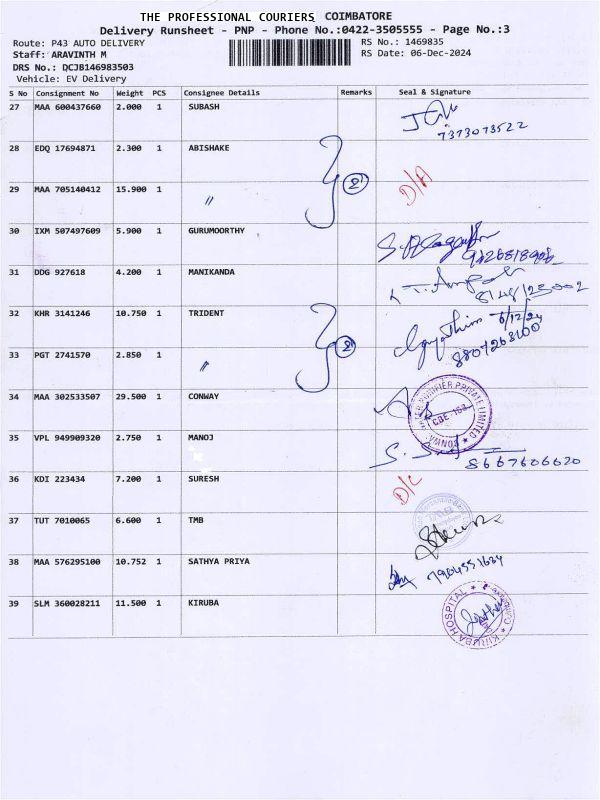 THE PROFESSIONAL COURIERS COIMBATORE
Delivery Runsheet - PNP - Phone No.:0422-3505555 - Page No.:3
Route: P43 AUTO DELIVERY
RS No.: 1469835
Staff: ARAVINTH M
RS Date: 06-Dec-2024
DRS No.: DCJB146983503
Vehicle: EV Delivery
S No Consignment No Weight PCS Consignee Details Remarks Seal & Signature
27 MAA 600437660 2.000 1 SUBASH
7373073522
28 EDQ 17694871 2.300 1 ABISHAKE
2 D/A
29 MAA 705140412 15.900 1 〃
30 IXM 507497609 5.900 1 GURUMOORTHY
31 DDG 927618 4.200 1 MANIKANDA
32 KHR 3141246 10.750 1 TRIDENT
6/12/24
2
33 PGT 2741570 2.850 1 〃
8807263100
34 MAA 302533507 29.500 1 CONWAY
PURIFIER PRIVATE LIMITED
35 VPL 949909320 2.750 1 MANOJ
8667606620
36 KDI 223434 7.200 1 SURESH
D/C
37 TUT 7010065 6.600 1 TMB
38 MAA 576295100 10.752 1 SATHYA PRIYA
39 SLM 360028211 11.500 1 KIRUBA
KIRUBA HOSPITAL